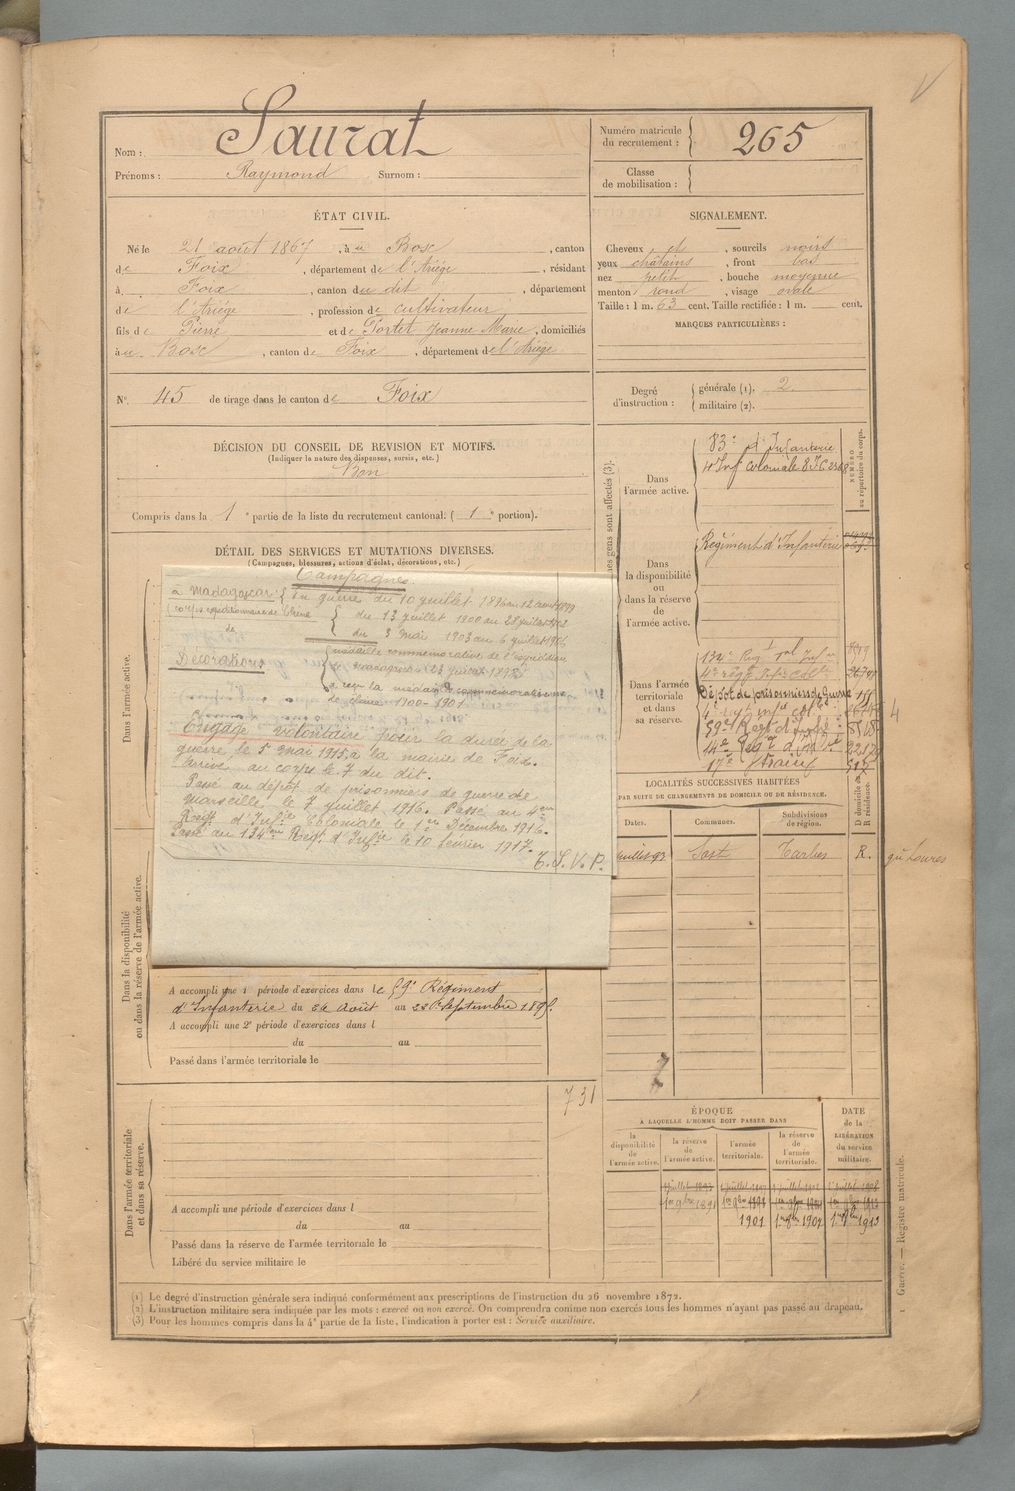 Nom : Saurat
Prénoms : Raymond Surnom :
Numéro matricule du recrutement : 265
Classe de mobilisation :
ÉTAT CIVIL.
Né le 21 août 1867, à u Bosc, canton
de Foix, département de l'Ariége, résidant
à Foix, canton du dit, département
de l'Ariége, profession de cultivateur
fils de Pierre et de Portet Jeanne Marie, domiciliés
à u Bosc, canton de Foix, département de l'Ariège
SIGNALEMENT.
Cheveux et, sourcils noirs
yeux châtains, front bas
nez petit, bouche moyenne
menton rond, visage ovale
Taille : 1 m. 63 cent. Taille rectifiée : 1 m. cent.
MARQUES PARTICULIÈRES :
N° 45 de tirage dans le canton de Foix
Degré d'instruction : générale (1). 2
militaire (2).
DÉCISION DU CONSEIL DE REVISION ET MOTIFS.
(Indiquer la nature des dispenses, sursis, etc.)
Bon
Compris dans la 1e partie de la liste du recrutement cantonal: ( 1e portion).
DÉTAIL DES SERVICES ET MUTATIONS DIVERSES.
(Campagnes, blessures, actions d'éclat, décorations, etc.)
Campagnes
à Madagascar du 10 juillet
du 13 juillet 1900 au
du 3 mai 1903 au 6 juillet 1906
Décorations
médaille commémorative de l'expédition
a reçu la médaille commémorative
de Chine 1900-1901
Engagé volontaire pour la durée de la
guerre, le 5 mai 1915, à la mairie de Foix.
Arrivé au corps le 7 du dit.
Passé au dépôt de prisonniers de guerre de
Marseille, le 7 juillet 1916. Passé au 4em
Régt d'Infie Coloniale le 1er Décembre 1916.
Passé au 134em Régt d'Infie le 10 février 1917.
T. S. V. P.
Dans l'armée active.
Dans la disponibilité ou dans la réserve de l'armée active.
A accompli une 1e période d'exercices dans le 59e Régiment
d'Infanterie du 26 Août au 22 Septembre 1895.
A accompli une 2e période d'exercices dans l
du au
Passé dans l'armée territoriale le
731
Dans l'armée territoriale et dans sa réserve.
A accompli une période d'exercices dans l
du au
Passé dans la réserve de l'armée territoriale le
Libéré du service militaire le
NUMÉRO au répertoire du corps.
Dans l'armée active.
83e d'Infanterie
Dans la disponibilité ou dans la réserve de l'armée active.
Régiment d'Infanterie
Dans l'armée territoriale et dans sa réserve.
Dépôt de prisonniers de Guerre
59e Regt d'Infie
LOCALITÉS SUCCESSIVES HABITÉES
PAR SUITE DE CHANGEMENTS DE DOMICILE OU DE RÉSIDENCE.
Dates. Communes. Subdivisions de région. D domicile R résidence.
Sost Tarbes R.
ÉPOQUE
À LAQUELLE L'HOMME DOIT PASSER DANS
la disponibilité de l'armée active.
la réserve de l'armée active.
l'armée territoriale.
la réserve de l'armée territoriale.
DATE de la LIBÉRATION du service militaire.
1901
(1) Le degré d'instruction générale sera indiqué conformément aux prescriptions de l'instruction du 26 novembre 1872.
(2) L'instruction militaire sera indiquée par les mots : exercé ou non exercé. On comprendra comme non exercés tous les hommes n'ayant pas passé au drapeau.
(3) Pour les hommes compris dans la 4e partie de la liste, l'indication à porter est : Service auxiliaire.
Guerre. — Registre matricule.